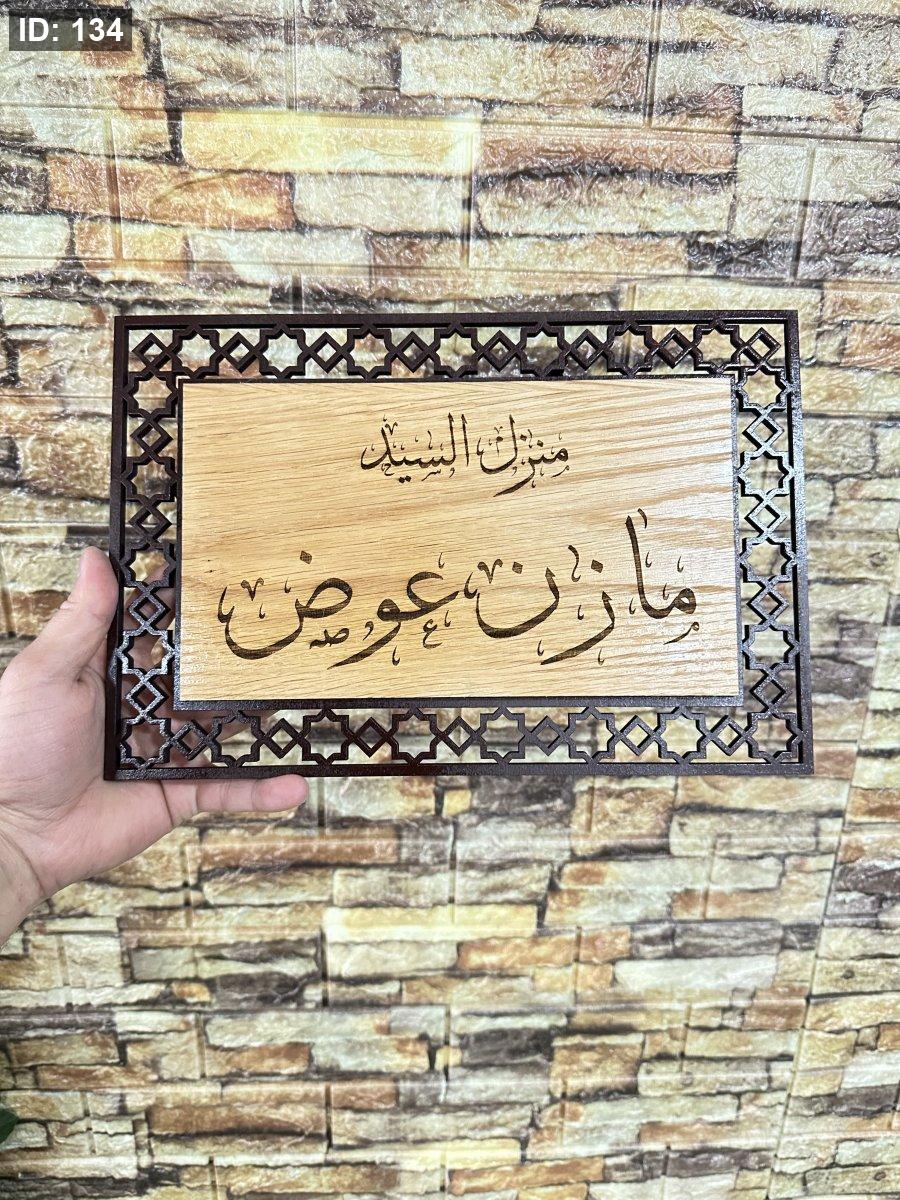 ID: 134
منزل السيد
مازن عوض